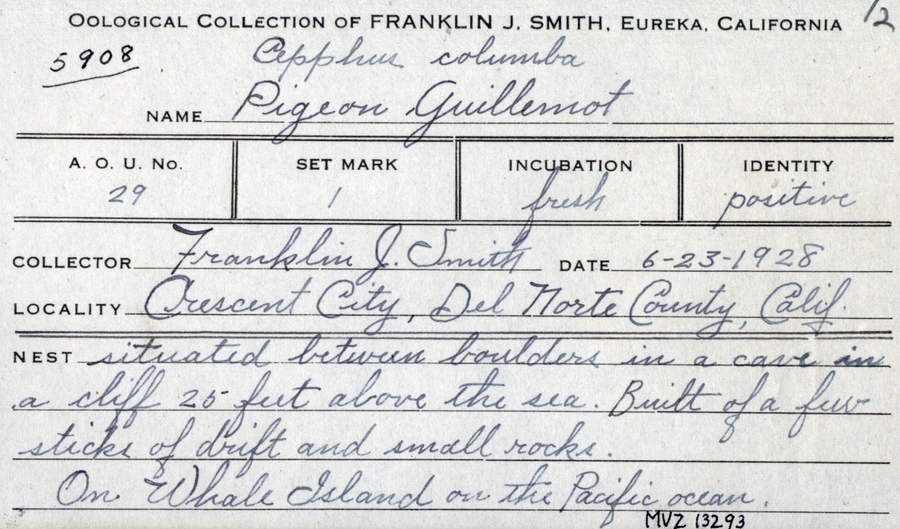 OOLOGICAL COLLECTION OF FRANKLIN J. SMITH, EUREKA, CALIFORNIA 1/2
5908 Cepphus columba
NAME Pigeon Guillemot
A. O. U. NO. SET MARK INCUBATION IDENTITY
29 1 fresh positive
COLLECTOR Franklin J. Smith DATE 6-23-1928
LOCALITY Crescent City, Del Norte County, Calif.
NEST situated between boulders in a cave in
a cliff 25 feet above the sea. Built of a few
sticks of drift and small rocks.
On Whale Island on the Pacific ocean.
MVZ 13293